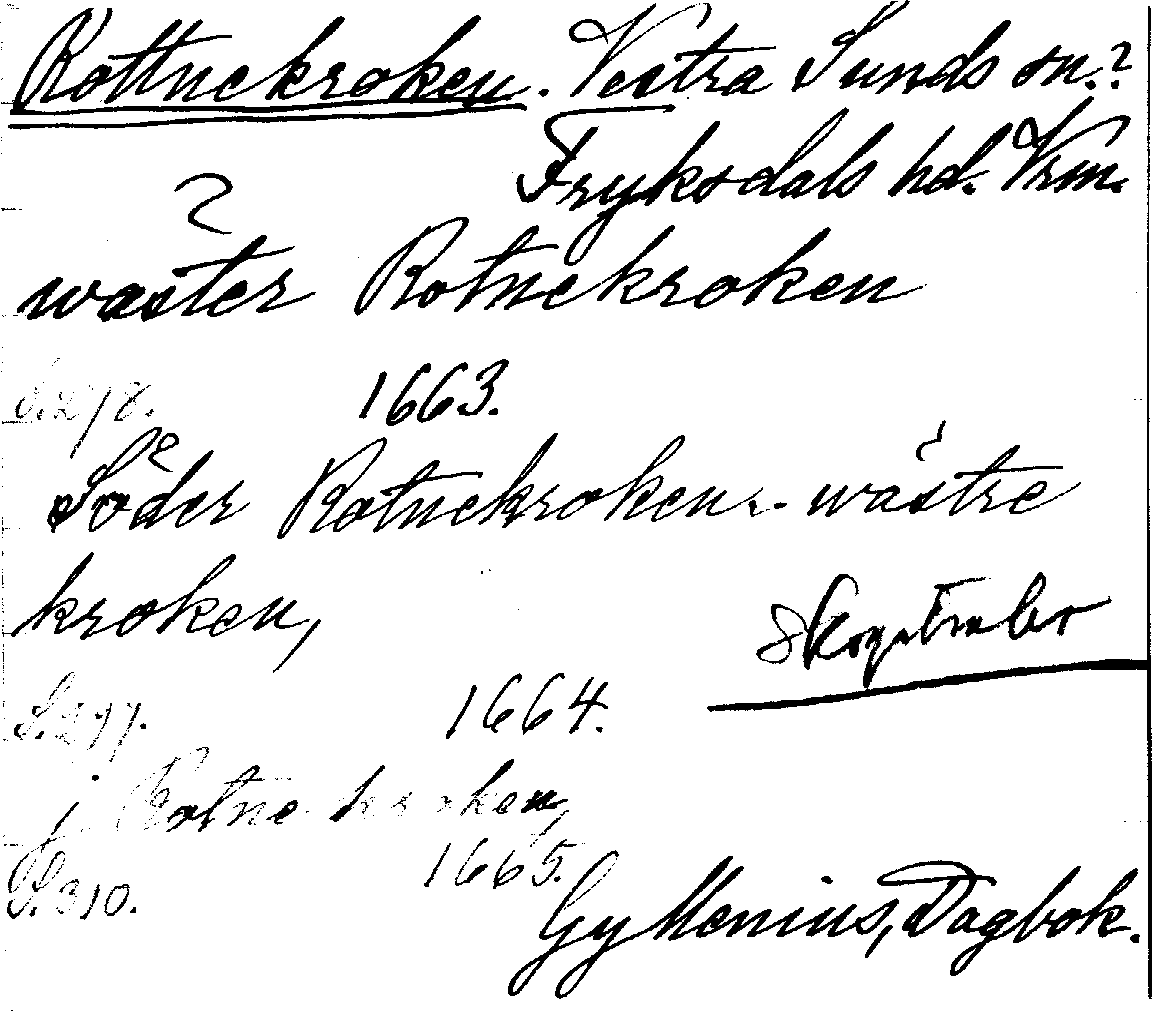 Rottnekroken. Vestra Sunds sn.?
Fryksdals hd. Vrm.
?
wäster Rotnekroken
S. 278. 1663.
Söder Rotnekroken - wästre
kroken,
S. 277. 1664.
j Rotnekroken,
S. 310. 1665.
Gyllenius, Dagbok.